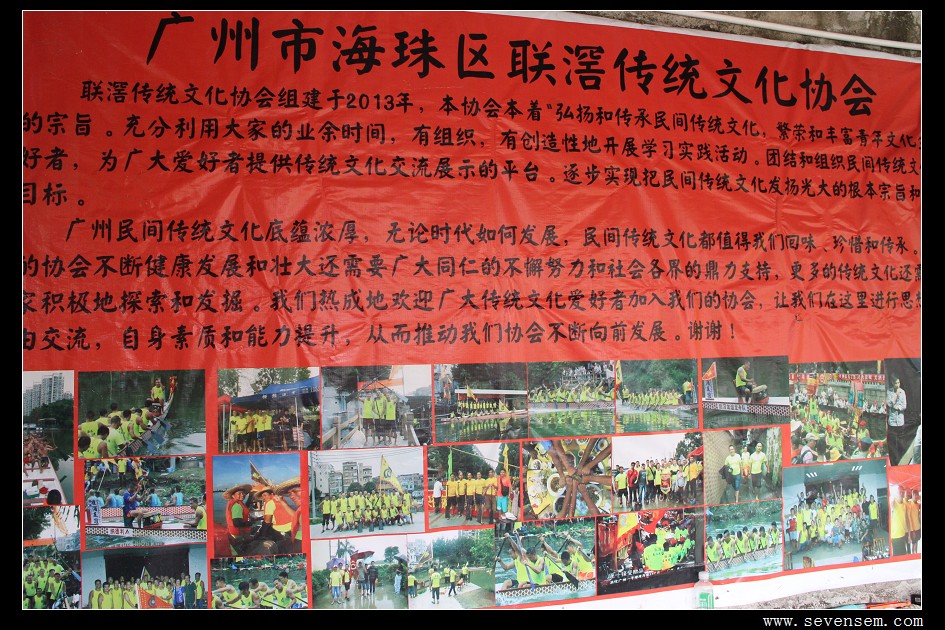 广州市海珠区联滘传统文化协会
联滘传统文化协会组建于2013年，本协会本着“弘扬和传承民间传统文化，繁荣和丰富青年文化
的宗旨。充分利用大家的业余时间，有组织，有创造性地开展学习实践活动。团结和组织民间传统文
好者，为广大爱好者提供传统文化交流展示的平台。逐步实现把民间传统文化发扬光大的根本宗旨和
目标。
广州民间传统文化底蕴浓厚，无论时代如何发展，民间传统文化都值得我们回味、珍惜和传承。
的协会不断健康发展和壮大还需要广大同仁的不懈努力和社会各界的鼎力支持，更多的传统文化还
家积极地探索和发掘。我们热成地欢迎广大传统文化爱好者加入我们的协会，让我们在这里进行思
由交流，自身素质和能力提升，从而推动我们协会不断向前发展。谢谢！
www.sevensem.com